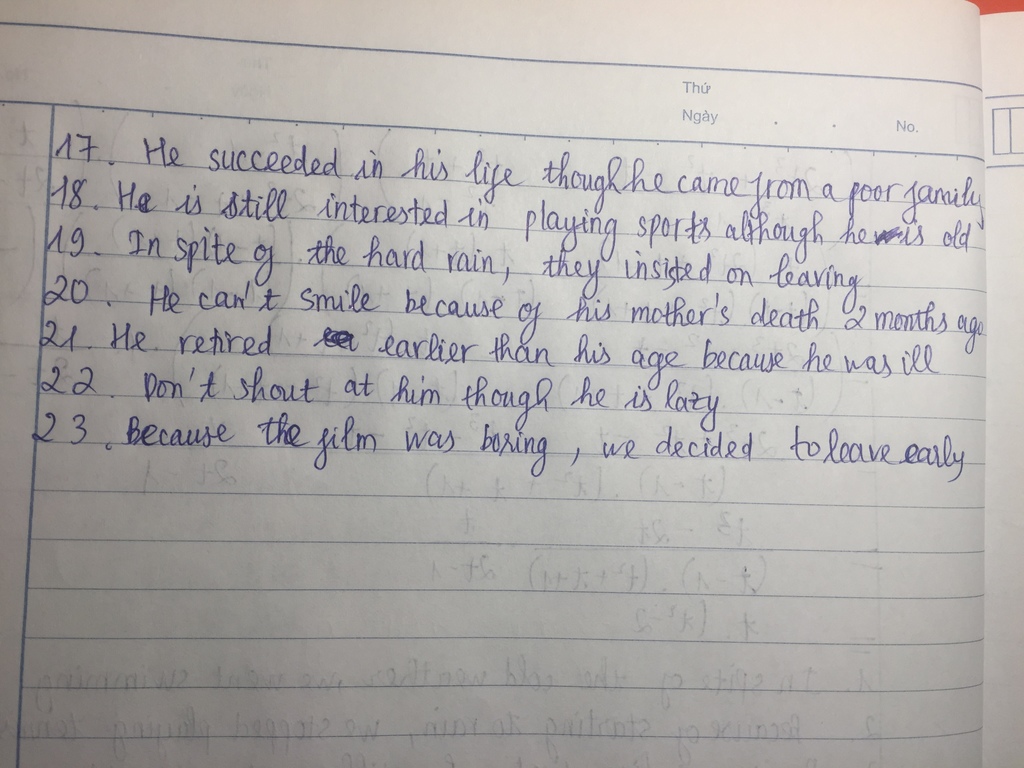 Thứ
Ngày
No.
17. He succeeded in his life though he came from a poor family
18. He is still interested in playing sports although he is old
19. In spite of the hard rain, they insisted on leaving
20. He can't smile because of his mother's death 2 months ago
21. He retired earlier than his age because he was ill
22. Don't shout at him though he is lazy
23. Because the film was boring, we decided to leave early